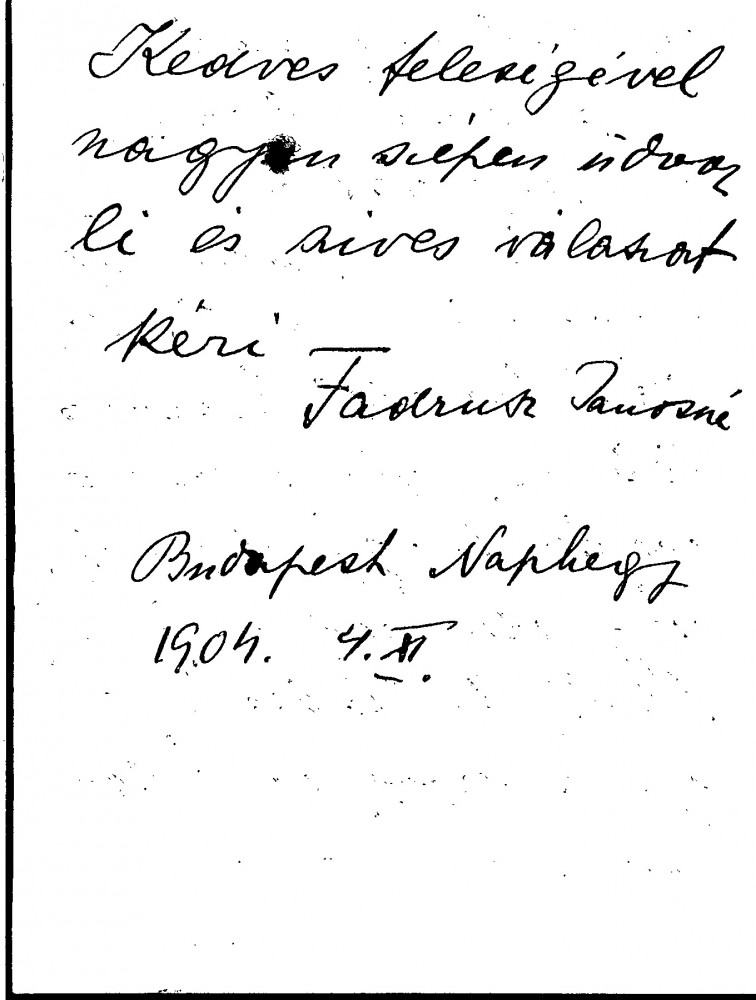 Kedves feleségével
nagyon szépen üdvöz
li és szives választ
kéri
Fadrusz Jánosné
Budapest Naphegy
1904. 4. XI.